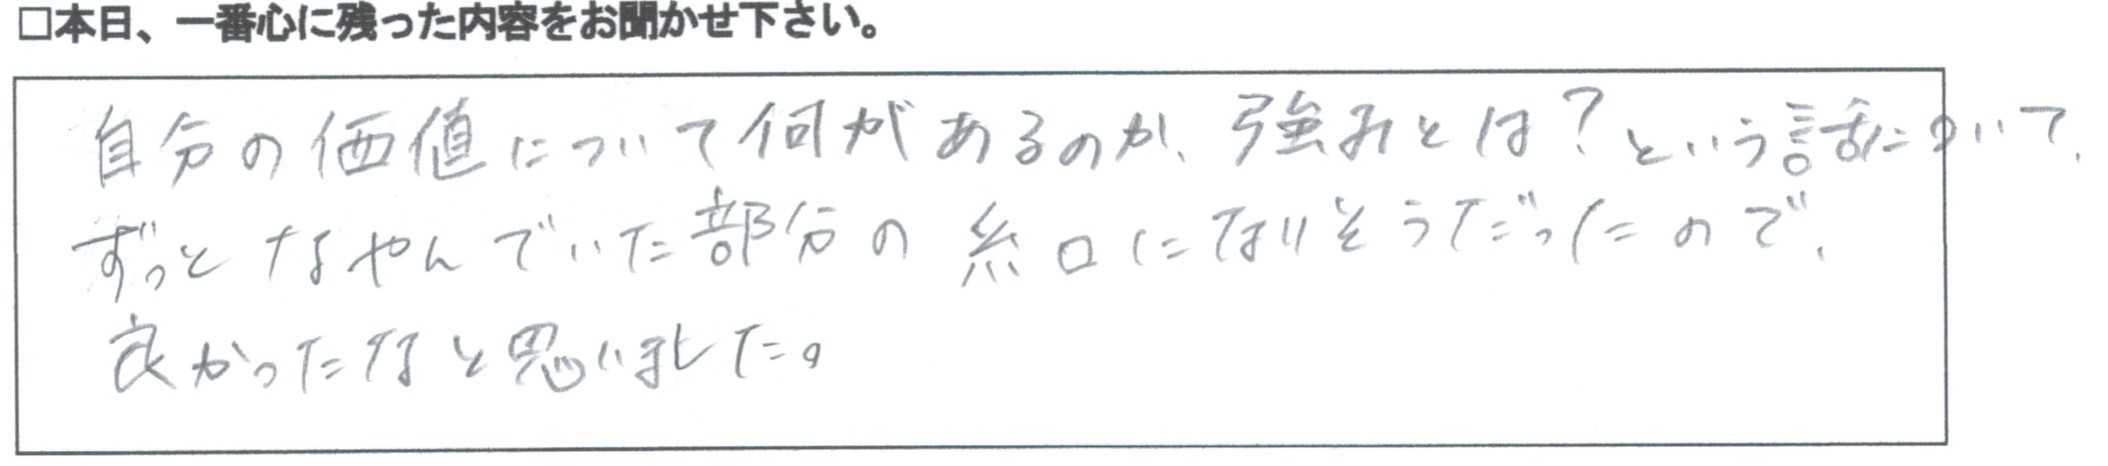 □本日、一番心に残った内容をお聞かせ下さい。
自分の価値について何があるのか、強みとは？という話について、
ずっとなやんでいた部分の糸口になりそうだったので、
良かったなと思いました。